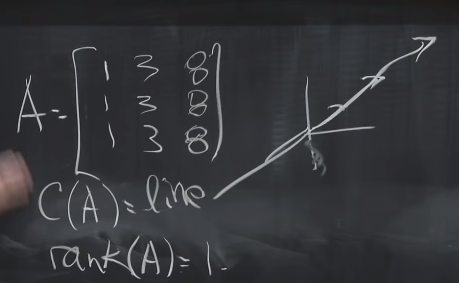 A = [ 1 3 8
1 3 8
1 3 8 ]
C(A) = line
rank(A) = 1.